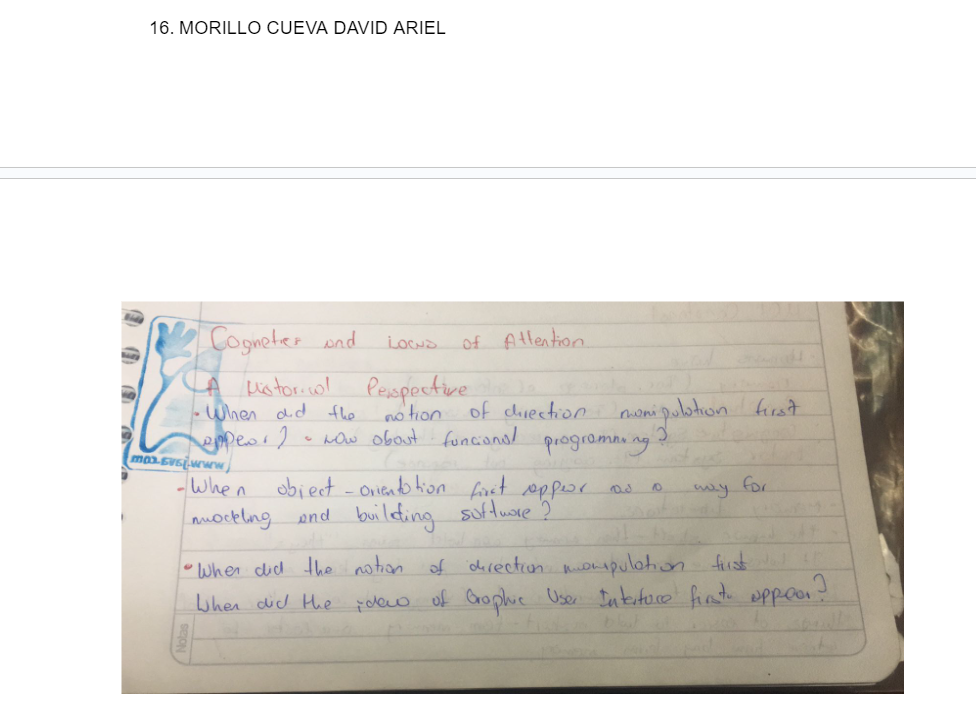 16. MORILLO CUEVA DAVID ARIEL
Cognetics and Locus of Attention
A Historical Perspective
• When did the notion of direction manipulation first
appear? • How about funcional programming?
www.java.com
- When object - orientation first appear as a way for
modeling and building software?
• When did the notion of direction manipulation first
When did the ideas of Graphic User Interface first appear?
Notas